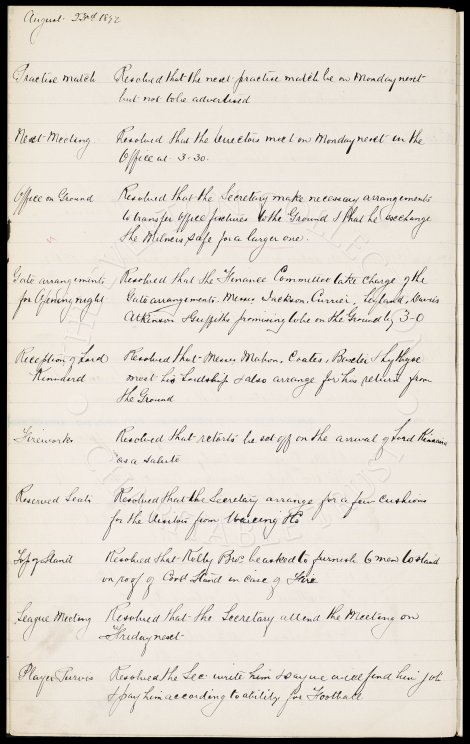 August 23rd 1892
Practise match Resolved that the next practise match be on Monday next
but not to be advertised
Next Meeting Resolved that the directors meet on Monday next in the
Office at 3-30.
Office on Ground Resolved that the Secretary make necessary arrangements
to transfer office fixtures to the Ground & that he exchange
the Milners safe for a larger one.
Gate arrangements Resolved that the Finance Committee take charge of the
for Opening night Gate arrangements. Messrs Jackson, Currier, Leyland, Davies
Atkinson & Griffiths promising to be on the Ground by 3-0
Reception of Lord Resolved that Messrs Mahon, Coates, Baxter &
Kinnaird meet his Lordship & also arrange for his return from
the Ground
Fireworks Resolved that retorts be set off on the arrival of Lord Kinnaird
as a salute
Reserved Seats Resolved that the Secretary arrange for a few cushions
for the Visitors from
Top of Stand Resolved that Kelly Bros be asked to furnish 6 men to stand
on roof of Cov'd Stand in case of Fire
League Meeting Resolved that the Secretary attend the Meeting on
Friday next
Player Purvis Resolved the Sec write him & say we will find him job
& pay him according to ability for Football